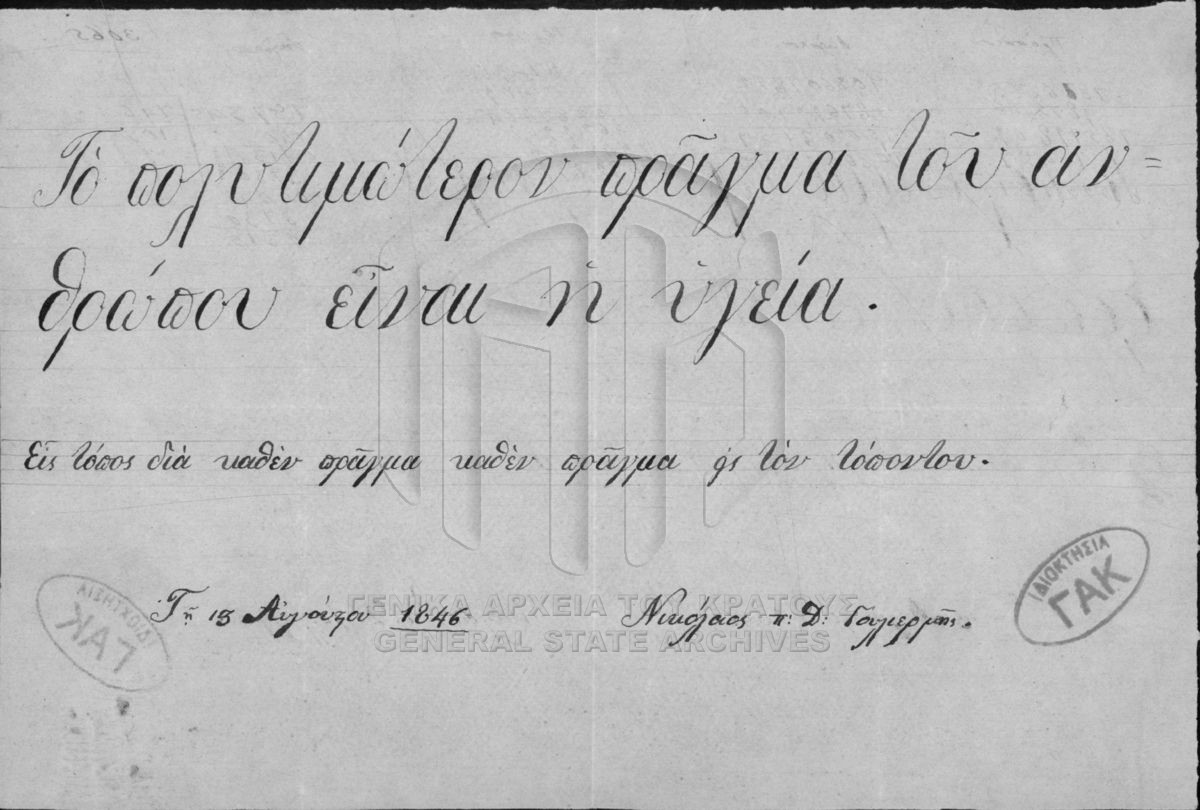 Τὸ πολυτιμώτερον πρᾶγμα τοῦ ἀν=
θρώπου εἶναι ἡ ὑγεία.
Εἷς τόπος διὰ καθὲν πρᾶγμα καθὲν πρᾶγμα εἰς τὸν τόποντου.
Τῇ 15 Αὐγούστου 1846 Νικόλαος π: Δ:
ΙΔΙΟΚΤΗΣΙΑ
ΓΑΚ
ΙΔΙΟΚΤΗΣΙΑ
ΓΑΚ
ΓΕΝΙΚΑ ΑΡΧΕΙΑ ΤΟΥ ΚΡΑΤΟΥΣ
GENERAL STATE ARCHIVES